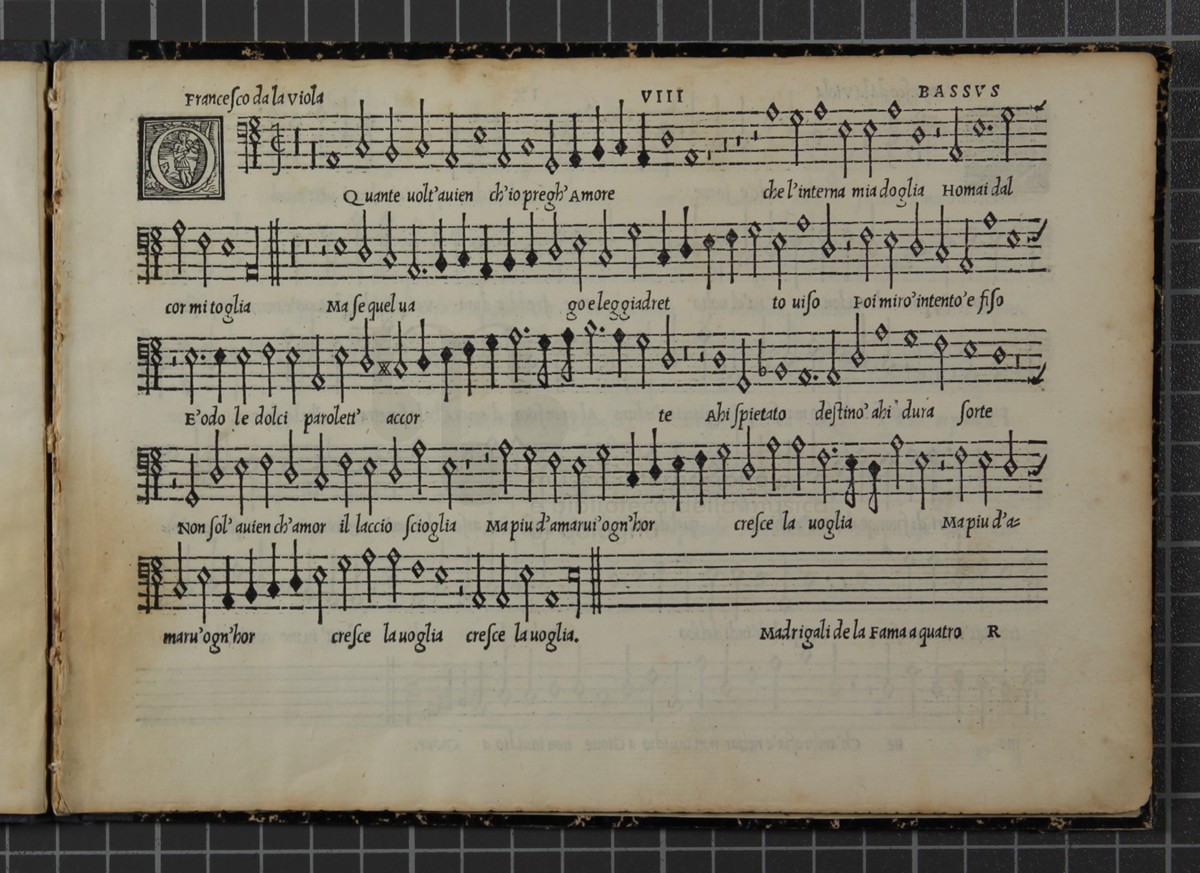 Franceſco da la viola VIII BASSVS
Quante uolt'auien ch'io pregh' Amore che l'interna mia doglia Homai dal
cor mi toglia Ma ſe quel ua go e leggiadret to uiſo Poi miro'intento'e fiſo
E'odo le dolci parolett' accor te Ahi ſpietato deſtino' ahi' dura ſorte
Non ſol' auien ch'amor il laccio ſcioglia Ma piu d'amarui'ogn'hor creſce la uoglia Ma piu d'a=
maru'ogn'hor creſce la uoglia creſce la uoglia.
Madrigali de la Fama a quatro R